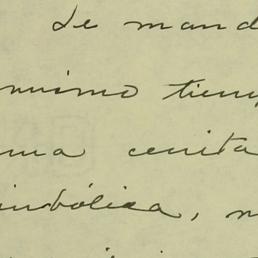 Le mand
mismo tiem
una cenita
imbólica, n